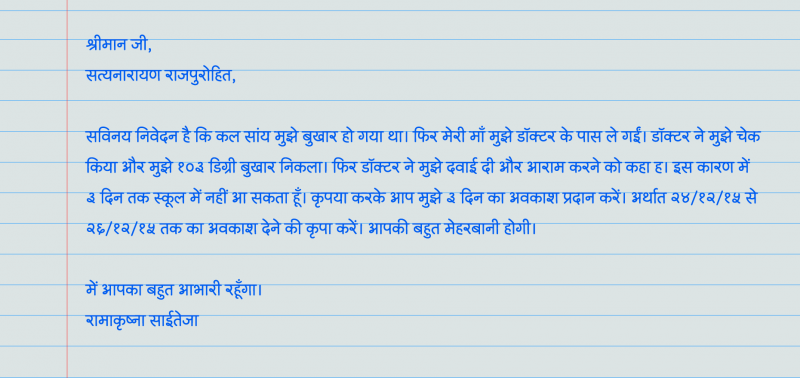 श्रीमान जी,
सत्यनारायण राजपुरोहित,
सविनय निवेदन है कि कल सांय मुझे बुखार हो गया था। फिर मेरी माँ मुझे डॉक्टर के पास ले गईं। डॉक्टर ने मुझे चेक
किया और मुझे १०३ डिग्री बुखार निकला। फिर डॉक्टर ने मुझे दवाई दी और आराम करने को कहा ह। इस कारण में
३ दिन तक स्कूल में नहीं आ सकता हूँ। कृपया करके आप मुझे ३ दिन का अवकाश प्रदान करें। अर्थात २४/१२/१५ से
२६/१२/१५ तक का अवकाश देने की कृपा करें। आपकी बहुत मेहरबानी होगी।
में आपका बहुत आभारी रहूँगा।
रामाकृष्ना साईतेजा